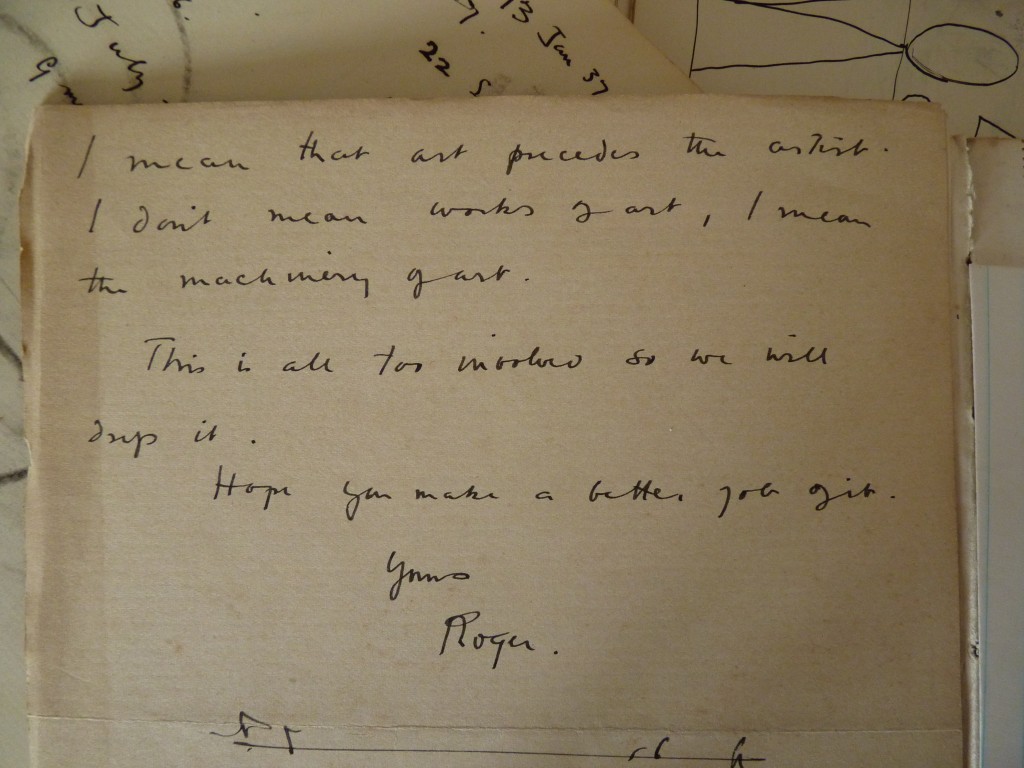 July
22
13 Jan 37
I mean that art precedes the artist.
I don't mean works of art, I mean
the machinery of art.
This is all too involved so we will
drop it.
Hope you make a better job of it.
Yours
Roger.